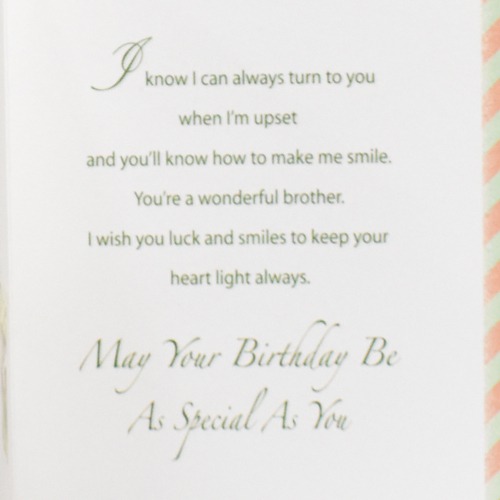 I know I can always turn to you
when I'm upset
and you'll know how to make me smile.
You're a wonderful brother.
I wish you luck and smiles to keep your
heart light always.
May Your Birthday Be
As Special As You